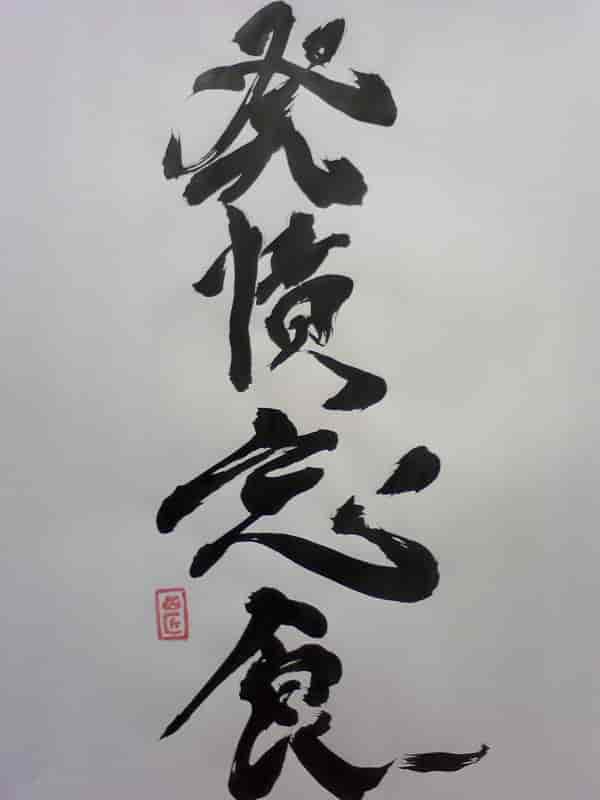 発憤忘食